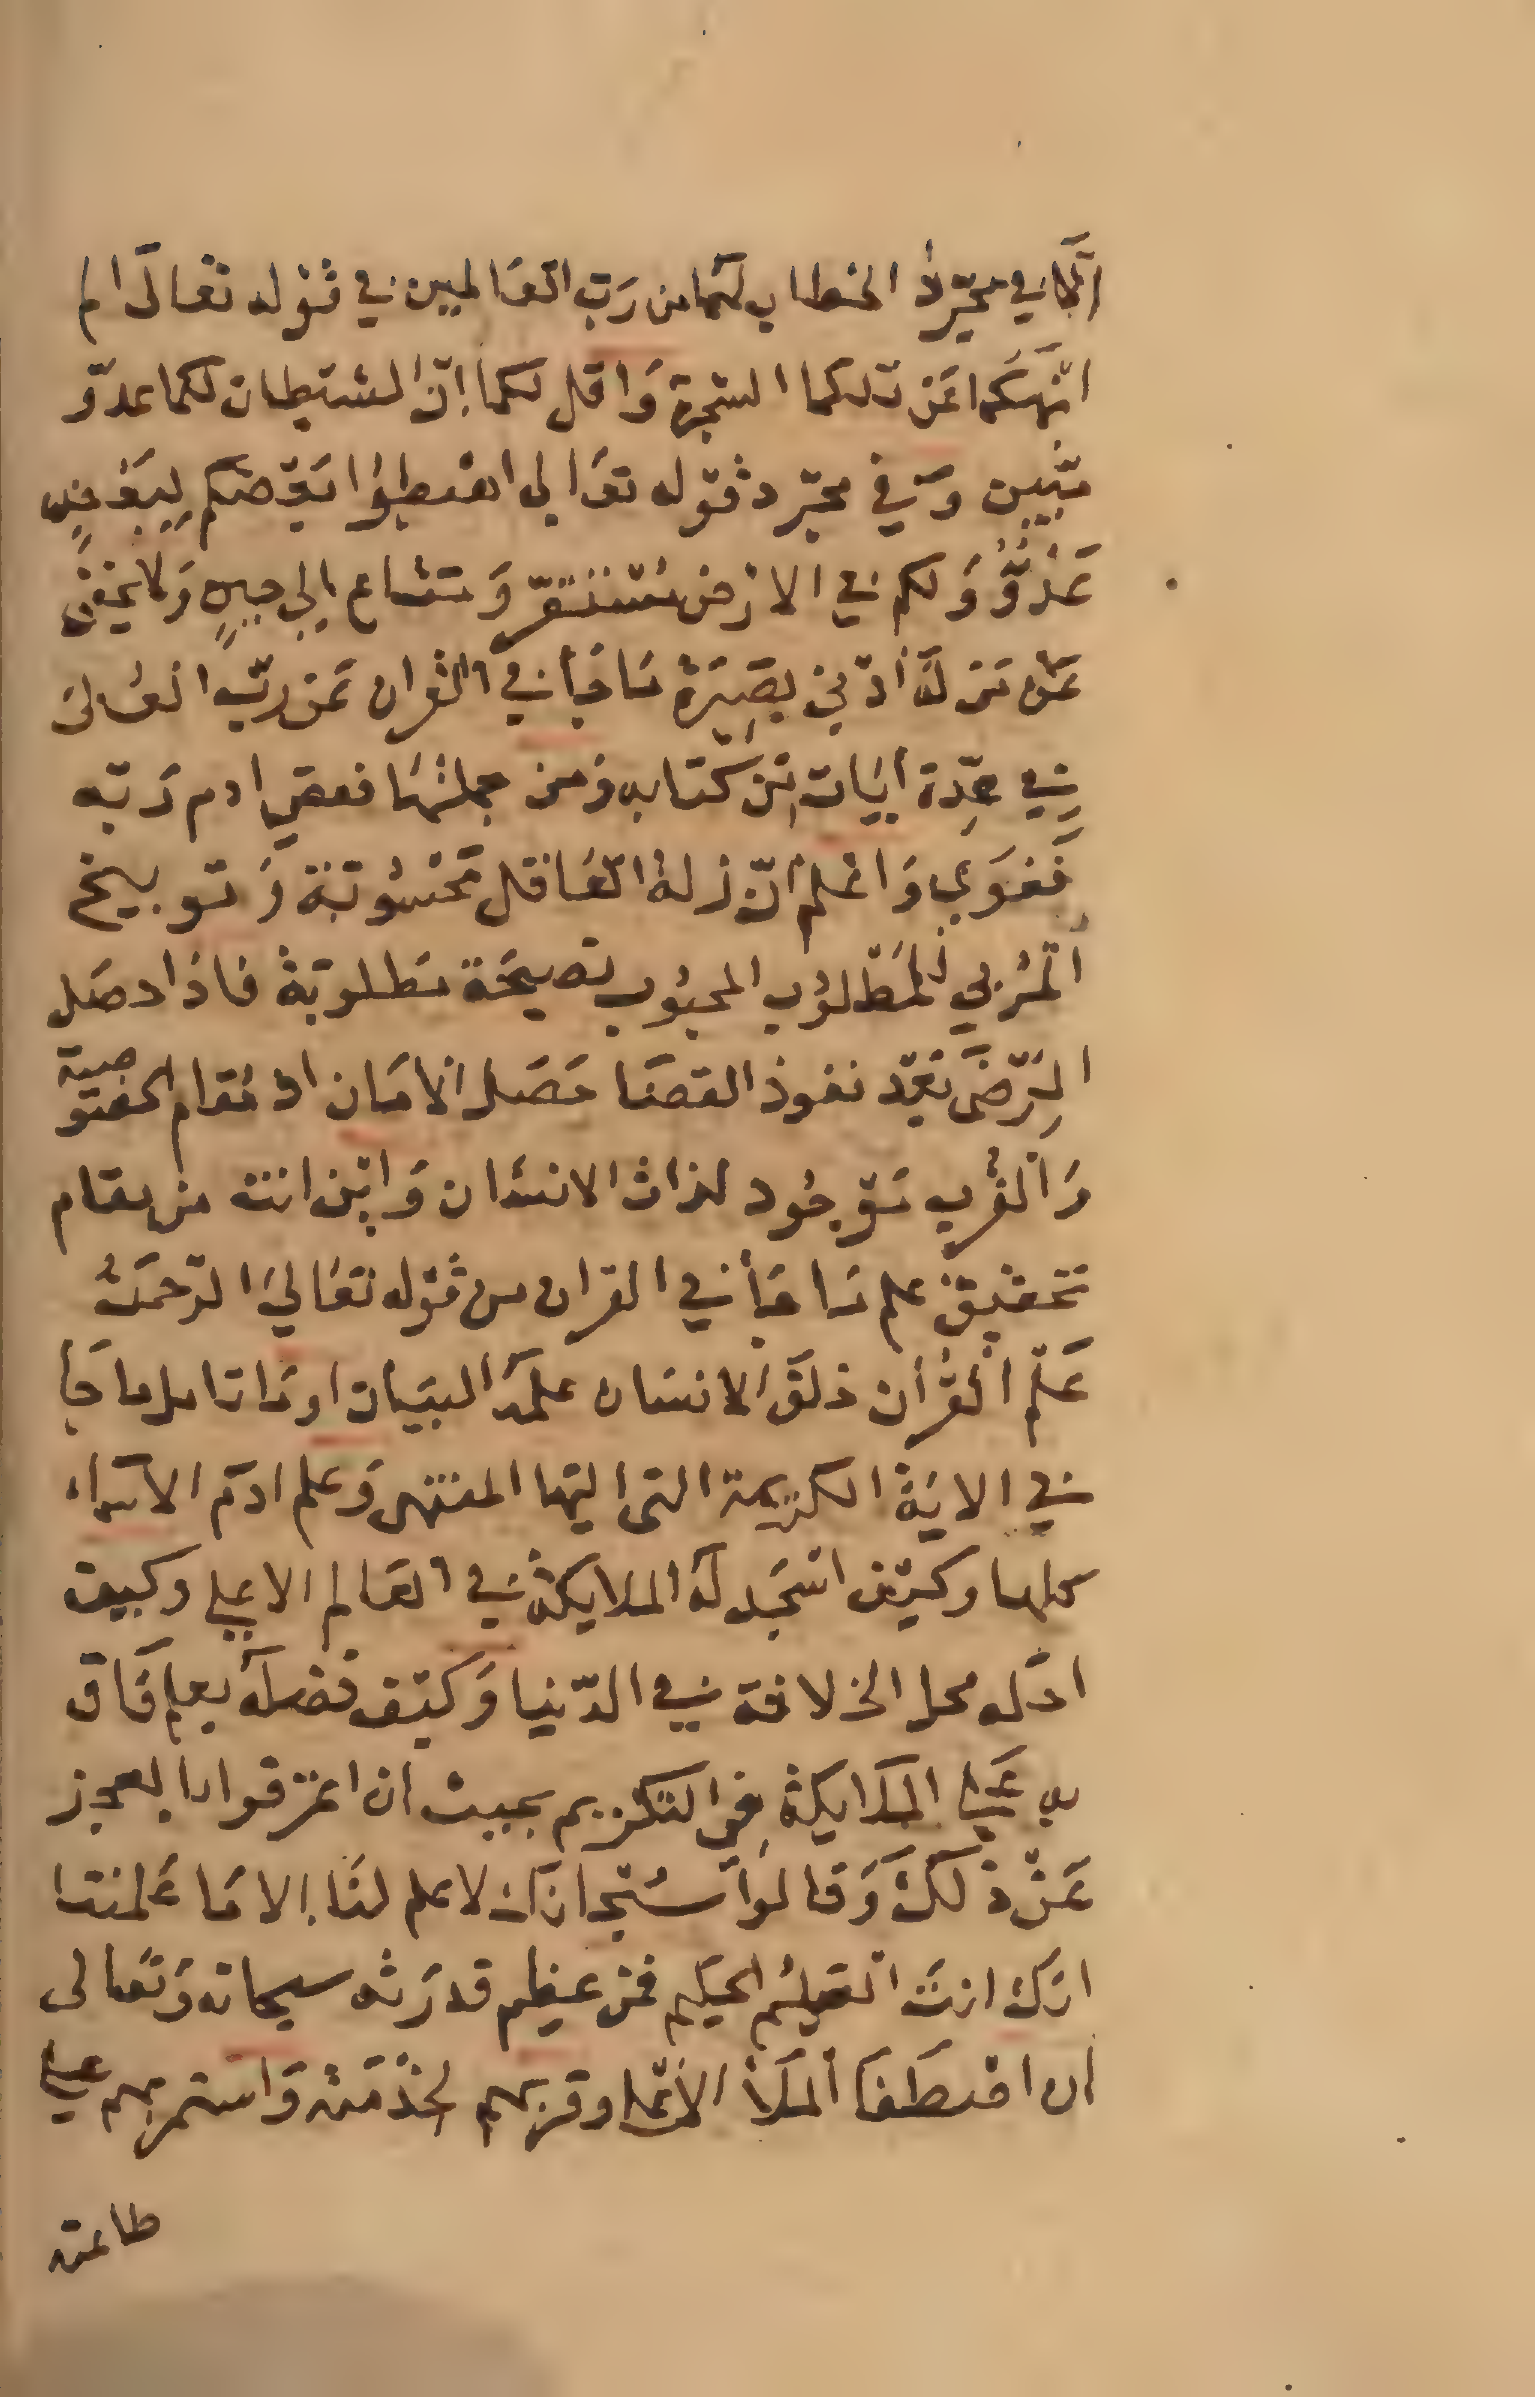 انما في مجرد الخطاب لكما من رب العالمين في قوله تعالى الم
انهكما عن تلكما الشجرة وَاقل لكما إنّ الشيطان لكما عدوّ
مّبين وَفي مجرّد قوله تعَالى اهبطوُا بَعْضكم لِبَعْضٍ
عَدُوٌّ وَلكم في الارْض مُسْتَقرّ وَمَتَاع إلى حينٍ وَلا يخفى
عَلى مَن لَهُ أدْنى بصِيَرة مَا جَأ في القران عَن ربّه تعَالىَ
في عِدّة أيَات مِن كتابه وَمن جملتهَا فعصى ادم رَبّه
فَغوَى وَاعْلم أنّ زلة العَاقل مَحْسُوبَة وَتوبيخ
المُربي للمَطْلوُب المحبُوب نصيحَة مَطلوبَة فاذا حصَل
الرّضَى بَعْد نفوذ القضَا حَصَل الأمَان اذ مَقام الخصوصية
وَالقُرب مَوْجُود لذات الانسَان وَايْن انت من مقام
تحقيق علم مَا جَأ في القران من قوله تعَالىَ الرّحمَنُ
عَلّم القُرأن خلَق الانسَان علمَهُ البيَان اوَمَا تامل ما جَأ
في الايَة الكريمة التى اليها المنتهى وَعلم ادَم الاسمَاء
كلها وكيْف اسْجَد لهُ الملايكة في العَالم الاعلى وكيف
احَله محل الخلافة في الدّنيا وَكيْف فضلهُ بعلم فَاق
به عَلى الملايكة في التكريم بحيث ان اعترفوا بالعجز
عَنْ ذلكَ وَقالوا سُبْحانَك لا علم لنَا إلا مَا عَلمتنا
انك انتَ العَليْم الحكيم فمن عظيم قدرَته سبحانه وَتعَالى
ان اصْطَفَا الملأ الأعْلا وقربهم لخدْمَته وَاستمر بهم على
طاعته